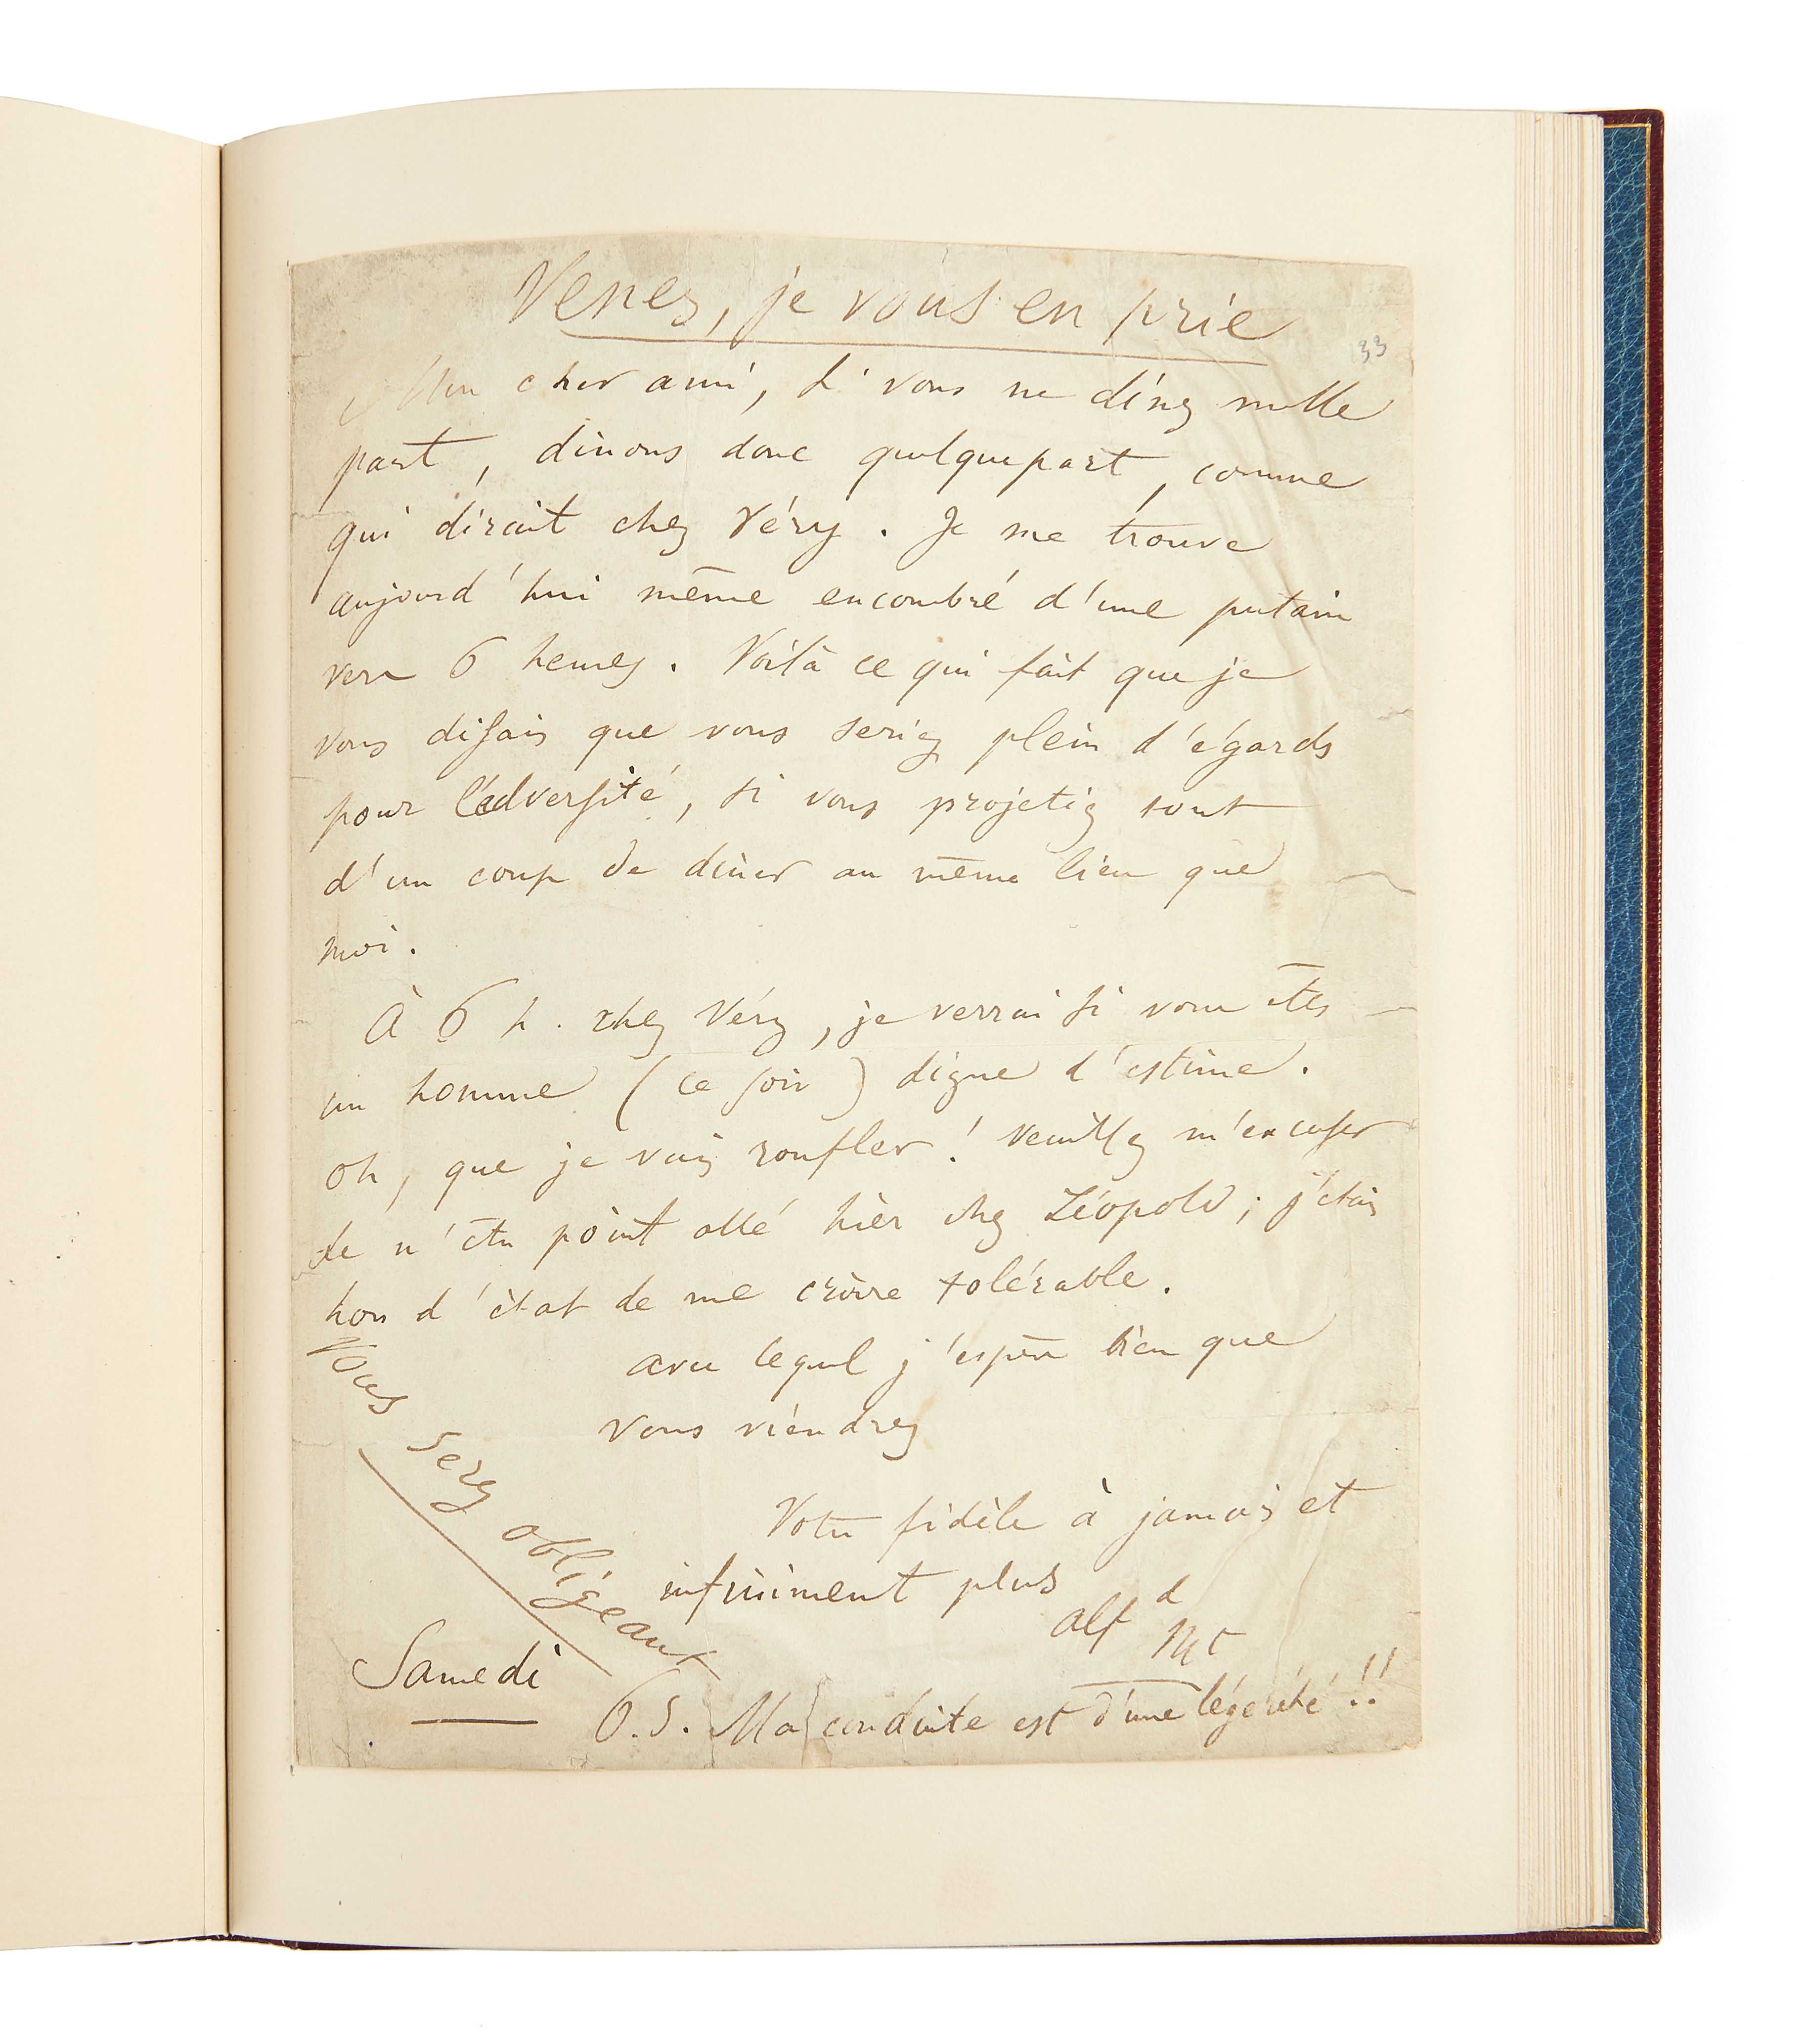 Venez, je vous en prie
33
Mon cher ami, si vous ne dînez nulle
part, dinons donc quelquepart, comme
qui dirait chez Véry. Je me trouve
aujourd'hui même encombré d'une putain
vers 6 heures. Voilà ce qui fait que je
vous disais que vous seriez plein d'égards
pour l'adversité, si vous projetiez tout
d'un coup de diner au même lieu que
moi.
À 6 h. chez Véry, je verrai si vous êtes
un homme (ce soir) digne d'estime.
Oh, que je vais ronfler! Veuillez m'excuser
de n'être point allé hier chez Léopold; j'étais
hors d'état de me croire tolérable.
avec lequel j'espère bien que
vous viendrez
Votre fidèle à jamais et
infiniment plus
Alf d Mt
Vous serez obligeant
Samedi
P.S. Ma conduite est d'une légèreté!!